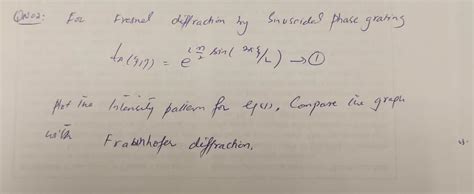 QNo2: For Fresnel diffraction by Sinusoidal phase grating
t_A(ξ,η) = e^{i m/2 sin(2πξ/L)} → ①
Plot the Intensity pattern for eq(1). Compare the graph
with Fraunhofer diffraction.